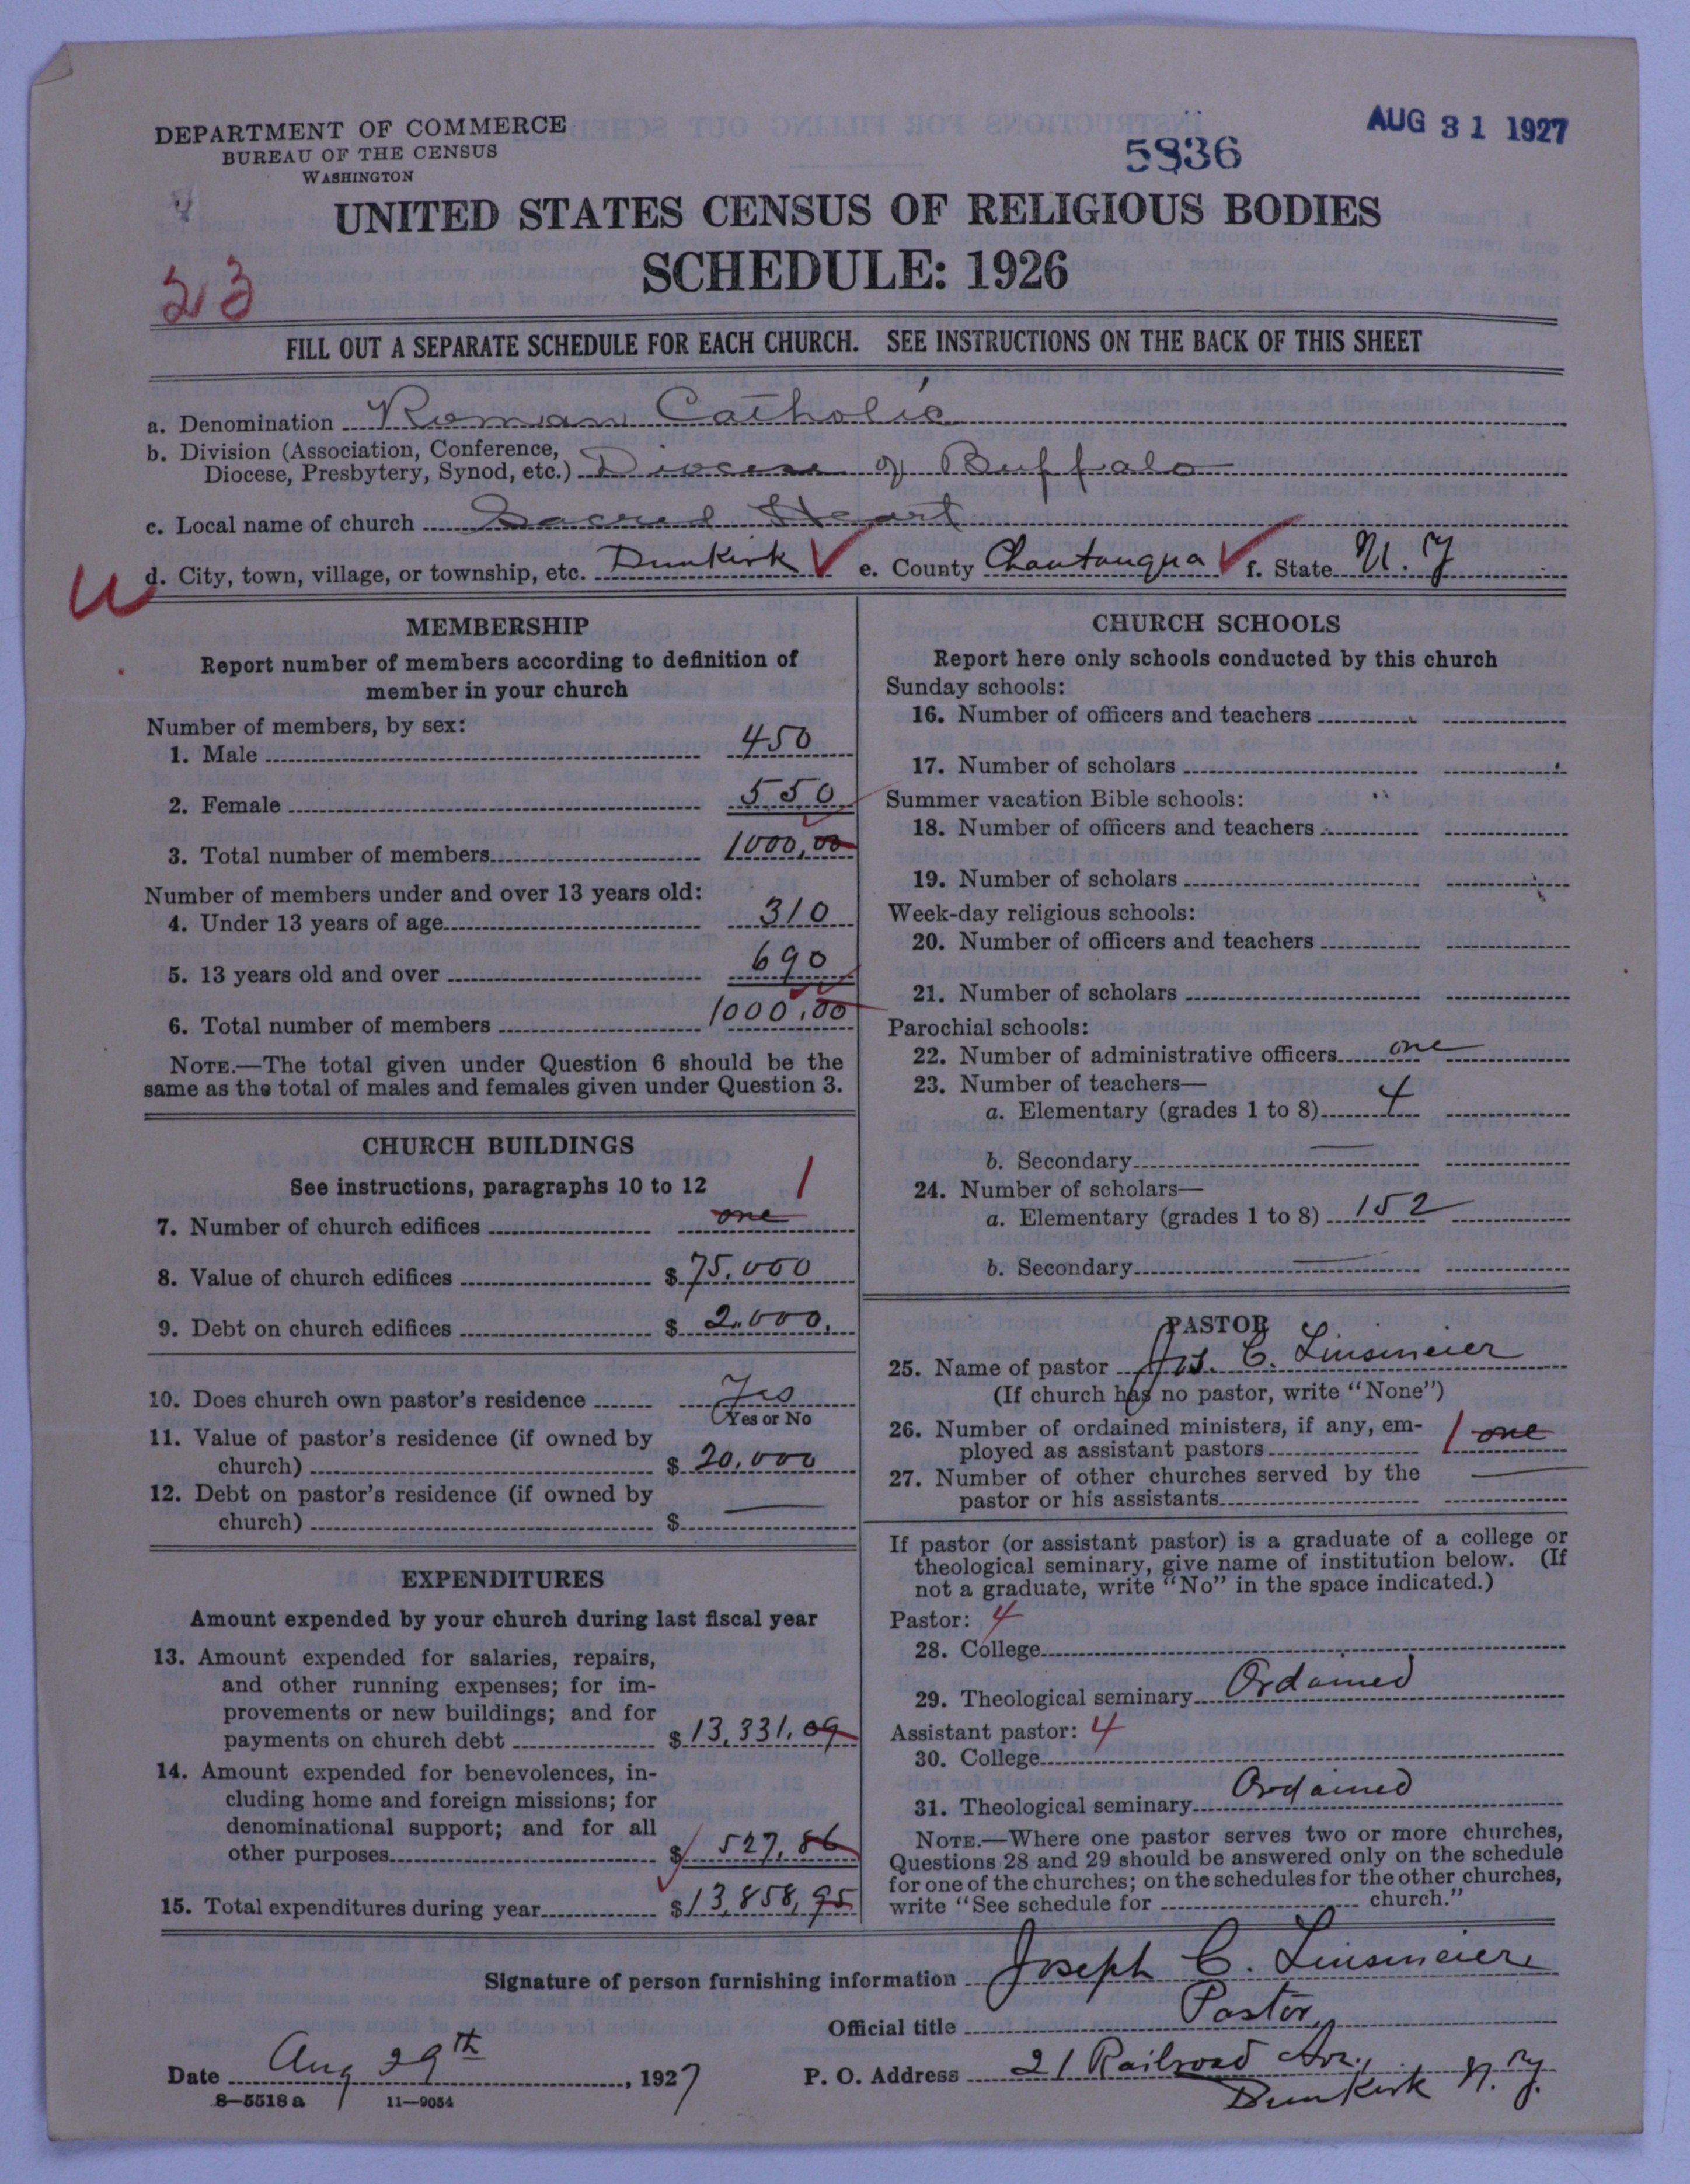 DEPARTMENT OF COMMERCE
BUREAU OF THE CENSUS
WASHINGTON
5836
AUG 31 1927
UNITED STATES CENSUS OF RELIGIOUS BODIES
SCHEDULE: 1926
23
FILL OUT A SEPARATE SCHEDULE FOR EACH CHURCH. SEE INSTRUCTIONS ON THE BACK OF THIS SHEET
a. Denomination Roman Catholic
b. Division (Association, Conference,
Diocese, Presbytery, Synod, etc.) Diocese of Buffalo
c. Local name of church Sacred Heart
d. City, town, village, or township, etc. Dunkirk e. County Chautauqua f. State N. Y
MEMBERSHIP
Report number of members according to definition of
member in your church
Number of members, by sex:
1. Male 450
2. Female 550
3. Total number of members 1000,00
Number of members under and over 13 years old:
4. Under 13 years of age 310
5. 13 years old and over 690
6. Total number of members 1000,00
NOTE.—The total given under Question 6 should be the
same as the total of males and females given under Question 3.
CHURCH BUILDINGS
See instructions, paragraphs 10 to 12 1
7. Number of church edifices one
8. Value of church edifices $ 75,000
9. Debt on church edifices $ 2,000,
10. Does church own pastor's residence Yes
Yes or No
11. Value of pastor's residence (if owned by
church) $ 20,000
12. Debt on pastor's residence (if owned by
church) $ —
EXPENDITURES
Amount expended by your church during last fiscal year
13. Amount expended for salaries, repairs,
and other running expenses; for im-
provements or new buildings; and for
payments on church debt $ 13,331,09
14. Amount expended for benevolences, in-
cluding home and foreign missions; for
denominational support; and for all
other purposes $ 527,86
15. Total expenditures during year $ 13,858,95
CHURCH SCHOOLS
Report here only schools conducted by this church
Sunday schools:
16. Number of officers and teachers
17. Number of scholars
Summer vacation Bible schools:
18. Number of officers and teachers
19. Number of scholars
Week-day religious schools:
20. Number of officers and teachers
21. Number of scholars
Parochial schools:
22. Number of administrative officers one
23. Number of teachers—
a. Elementary (grades 1 to 8) 4
b. Secondary —
24. Number of scholars—
a. Elementary (grades 1 to 8) 152
b. Secondary —
PASTOR
25. Name of pastor Jos. C. Linsmeier
(If church has no pastor, write "None")
26. Number of ordained ministers, if any, em-
ployed as assistant pastors 1 one
27. Number of other churches served by the
pastor or his assistants —
If pastor (or assistant pastor) is a graduate of a college or
theological seminary, give name of institution below. (If
not a graduate, write "No" in the space indicated.)
Pastor: 4
28. College
29. Theological seminary Ordained
Assistant pastor: 4
30. College
31. Theological seminary Ordained
NOTE.—Where one pastor serves two or more churches,
Questions 28 and 29 should be answered only on the schedule
for one of the churches; on the schedules for the other churches,
write "See schedule for church."
Signature of person furnishing information Joseph C. Linsmeier
Official title Pastor
Date Aug 29th, 1927 P. O. Address 21 Railroad Ave.,
Dunkirk N. Y.
8—5518 a 11—9054